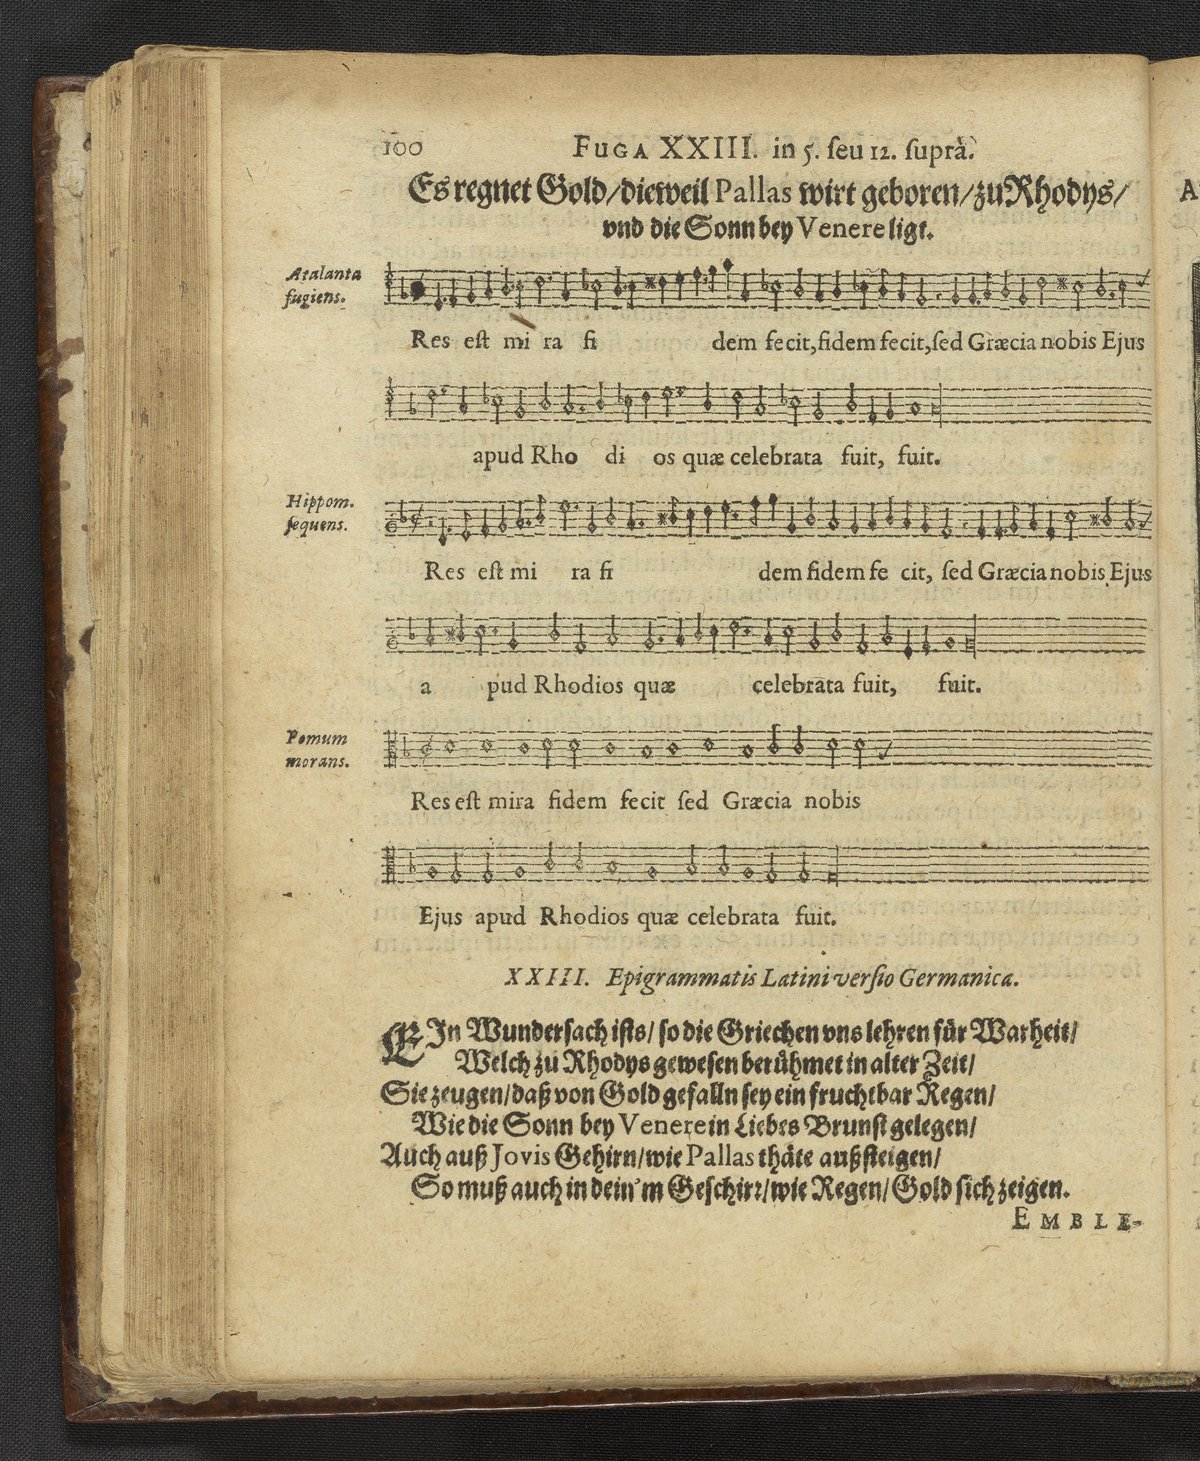 100 FUGA XXIII. in 5. ſeu 12. ſuprà.
Es regnet Gold/dieweil Pallas wirt geboren/zu Rhodys/
vnd die Sonn bey Venere ligt.
Atalanta
fugiens.
Res eſt mi ra fi dem fecit,fidem fecit,ſed Græcia nobis Ejus
apud Rho di os quæ celebrata fuit, fuit.
Hippom.
ſequens.
Res eſt mi ra fi dem fidem fe cit, ſed Græcia nobis Ejus
a pud Rhodios quæ celebrata fuit, fuit.
Pomum
morans.
Res eſt mira fidem fecit ſed Græcia nobis
Ejus apud Rhodios quæ celebrata fuit.
XXIII. Epigrammatis Latini verſio Germanica.
EIn Wunderſach iſts/ ſo die Griechen vns lehren für Warheit/
Welch zu Rhodys geweſen berühmet in alter Zeit/
Sie zeugen/daß von Gold gefalln ſey ein fruchtbar Regen/
Wie die Sonn bey Venere in Liebes Brunſt gelegen/
Auch auß Jovis Gehirn/wie Pallas thäte außſteigen/
So muß auch in dein'm Geſchirꝛ/wie Regen/ Gold ſich zeigen.
EMBLE-
A